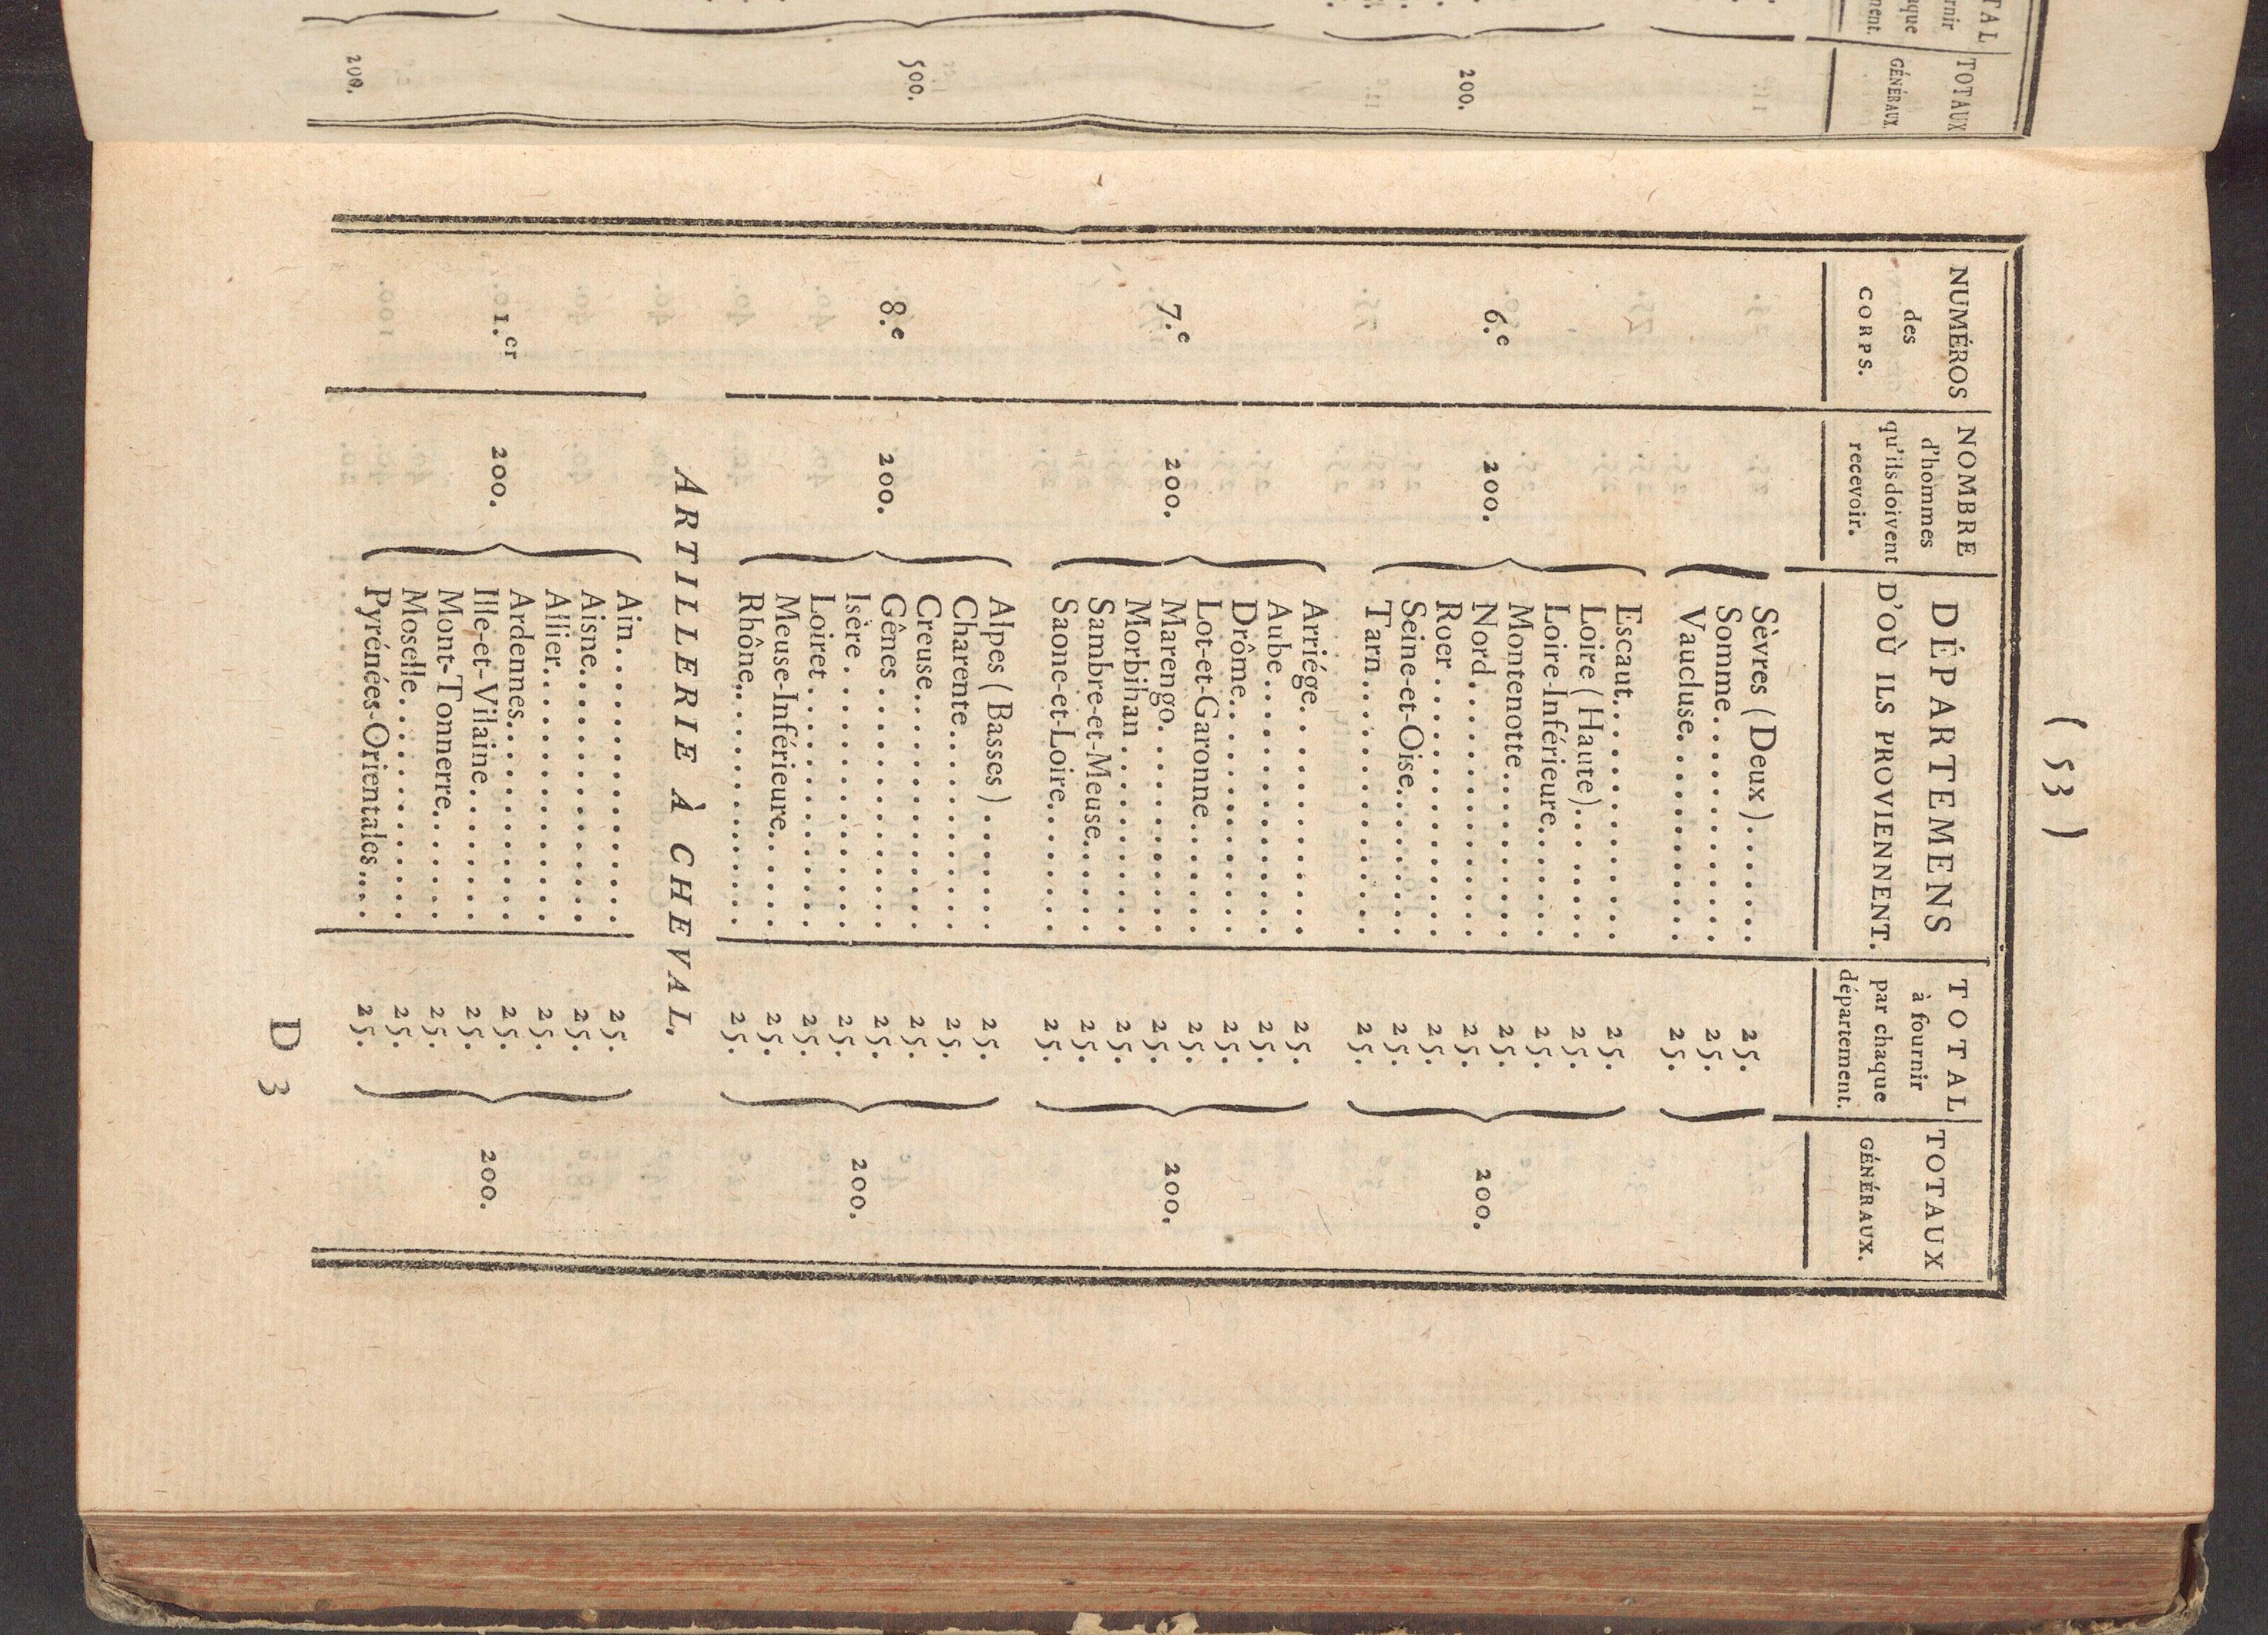 TAL
rnir
aque
ment.
TOTAUX
GÉNÉRAUX.
200.
500.
200.
( 53 )
NUMÉROS
des
CORPS.
NOMBRE
d'hommes
qu'ils doivent
recevoir.
DÉPARTEMENS
D'OÙ ILS PROVIENNENT.
TOTAL
à fournir
par chaque
département.
TOTAUX
GÉNÉRAUX.
Sèvres ( Deux ) . . . . . . . 25.
Somme. . . . . . . . . . . . 25.
Vaucluse. . . . . . . . . . . 25.
6.e 200. 200.
Escaut. . . . . . . . . . . . 25.
Loire ( Haute) . . . . . . . 25.
Loire-Inférieure. . . . . . . 25.
Montenotte. . . . . . . . . . 25.
Nord. . . . . . . . . . . . . 25.
Roer . . . . . . . . . . . . . 25.
Seine-et-Oise. . . . . . . . . 25.
Tarn . . . . . . . . . . . . . 25.
7.e 200. 200.
Arriége. . . . . . . . . . . . 25.
Aube. . . . . . . . . . . . . 25.
Drôme. . . . . . . . . . . . 25.
Lot-et-Garonne. . . . . . . . 25.
Marengo. . . . . . . . . . . 25.
Morbihan . . . . . . . . . . 25.
Sambre-et-Meuse. . . . . . . 25.
Saone-et-Loire. . . . . . . . 25.
8.e 200. 200.
Alpes ( Basses ) . . . . . . . 25.
Charente. . . . . . . . . . . 25.
Creuse. . . . . . . . . . . . 25.
Gênes . . . . . . . . . . . . 25.
Isère . . . . . . . . . . . . . 25.
Loiret . . . . . . . . . . . . 25.
Meuse-Inférieure. . . . . . . 25.
Rhône. . . . . . . . . . . . . 25.
ARTILLERIE À CHEVAL.
1.er 200. 200.
Ain. . . . . . . . . . . . . . 25.
Aisne. . . . . . . . . . . . . 25.
Allier. . . . . . . . . . . . . 25.
Ardennes. . . . . . . . . . . 25.
Ille-et-Vilaine. . . . . . . . . 25.
Mont-Tonnerre. . . . . . . . 25.
Moselle. . . . . . . . . . . . 25.
Pyrénées-Orientales . . . . 25.
D 3